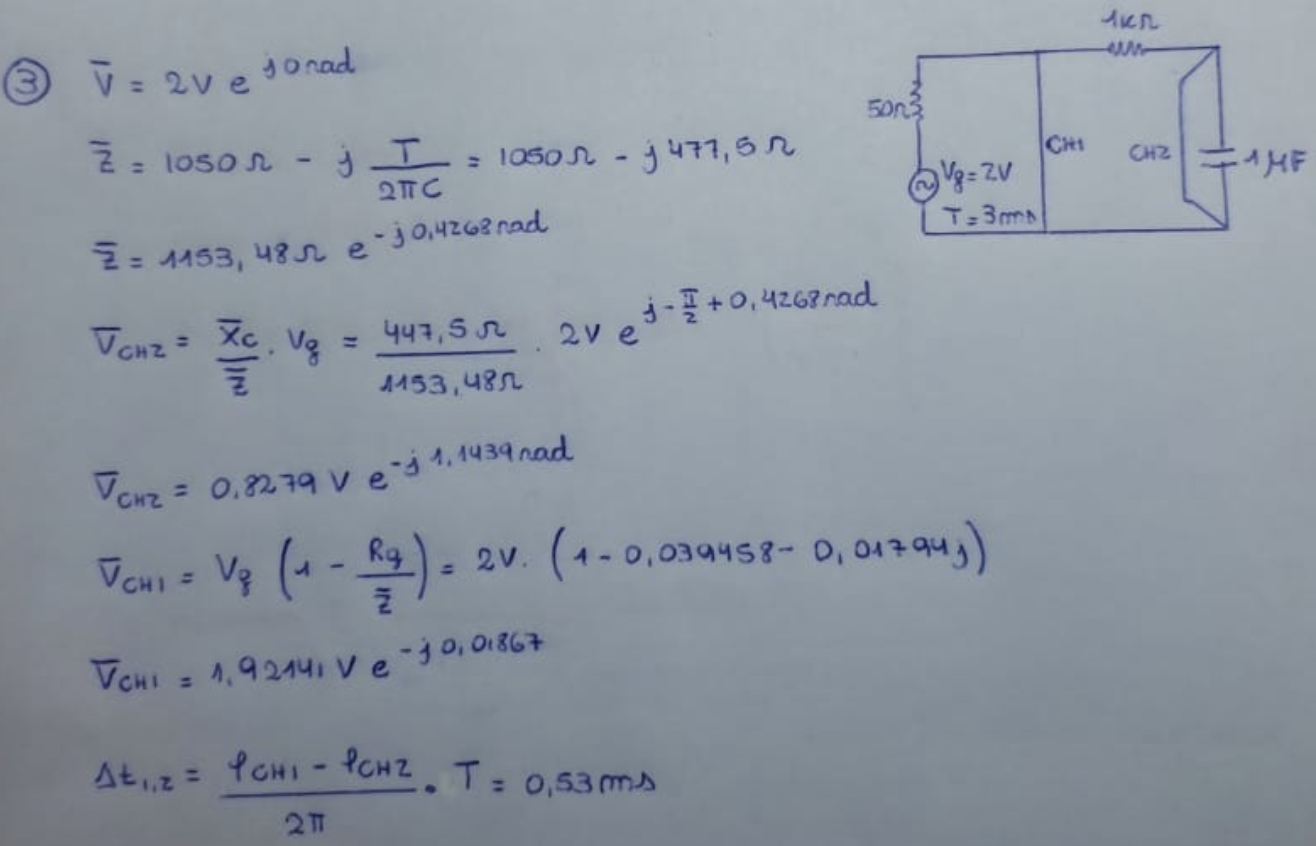 ③ V̄ = 2V e^{j0rad}
Z̄ = 1050Ω - j T/(2πC) = 1050Ω - j477,5Ω
Z̄ = 1153,48Ω e^{-j0,4268rad}
V̄CH2 = X̄c/Z̄ . Vg = 447,5Ω/1153,48Ω . 2V e^{j-π/2+0,4268rad}
V̄CH2 = 0,8279V e^{-j1,1439rad}
V̄CH1 = Vg (1 - Rg/Z̄) = 2V. (1-0,039458-0,01794j)
V̄CH1 = 1,92141V e^{-j0,01867}
Δt1,2 = (φCH1 - φCH2)/2π . T = 0,53ms
1KΩ
50Ω
CH1
CH2
1μF
Vg=2V
T=3ms